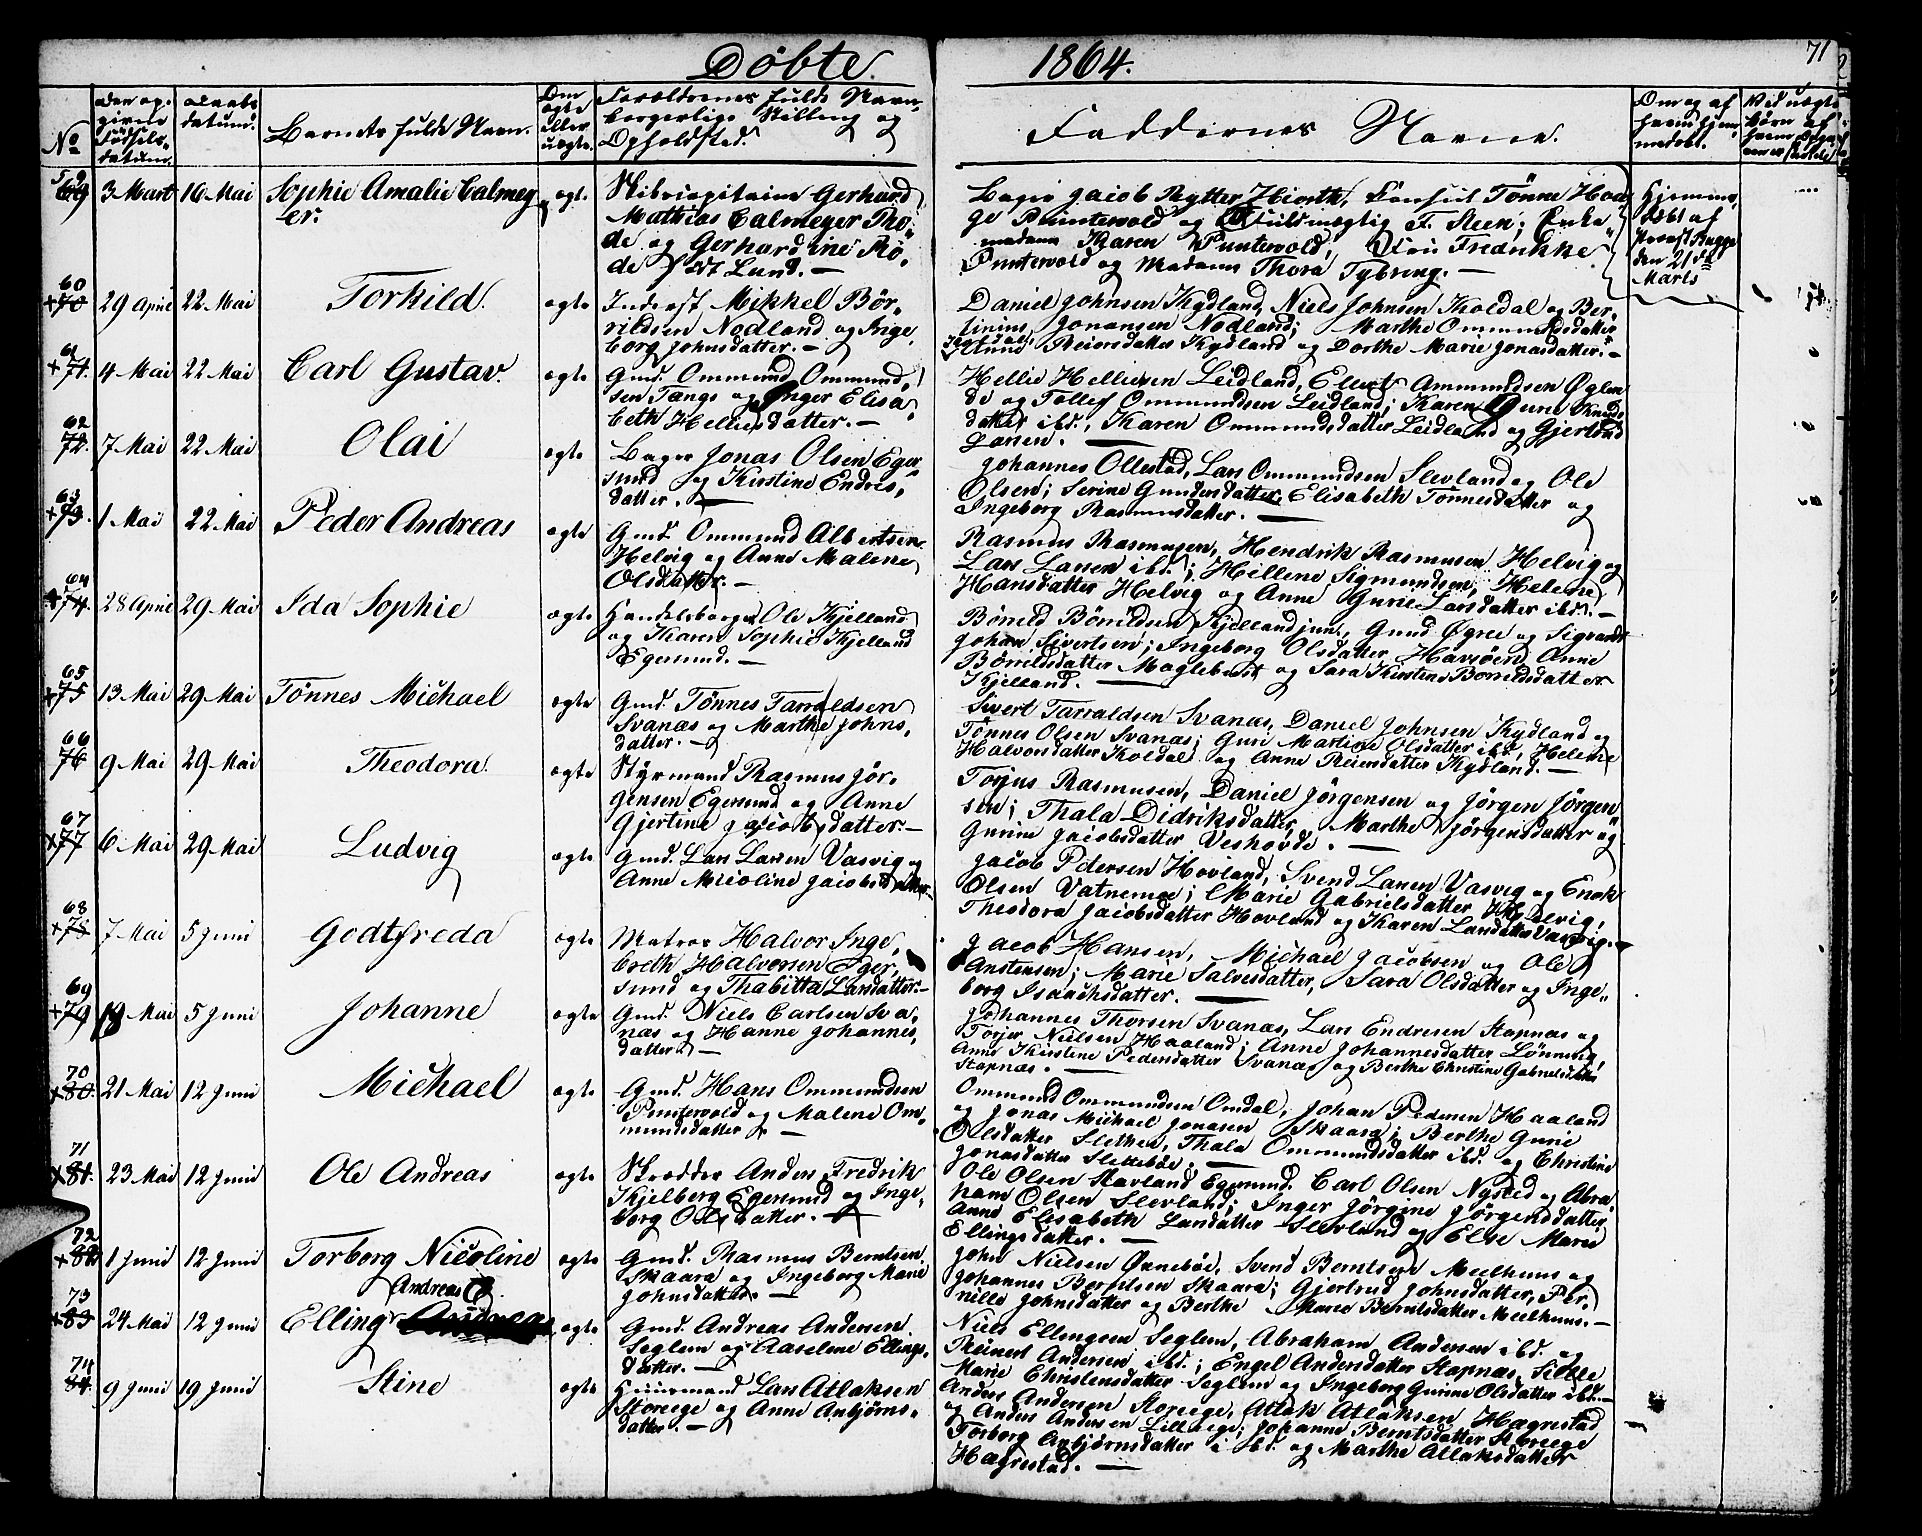 Døbte 1864.
71
No
Den op-
givne
Fødsels-
datum.
Daabs
datum.
Barnets fulde Navn.
Om
ægte
eller
uægte.
Forældrenes fulde Navn,
borgerlige Stilling og
Opholdsted.
Faddernes Navne.
Om og af
hvem hjem-
medøbt.
Ved uægte
Børn af
hvem
59
69 3 Mart 16 Mai Sophie Amalie Calmey-
er. ægte.
Skibscapitaine Gerhard
Mathias Calmeyer Tho-
de og Gerhardine Rø-
de Lund. —
Bager Jacob Rytter Hiorth, Consul Tönne Hod-
ge Puntervold og Fuldmægtig F. Steen; Enke-
madame Karen Puntervold, Fredrikke
Puntervold og Madame Thora Tybring. —
Hjemme-
døbt af
Provst Bugge
den 21de
Marts
60
+70 29 April 22 Mai Torkild. ægte
Inderst Mikkel Bör-
rildsen Nodland og Inge-
borg Johnsdatter. —
Daniel Johnsen Kydland, Niels Johnsen Koldal og Ber-
tinius Jonassen Nodland; Marthe Ommundsdatter
Anne Reiersdatter Kydland og Dorthe Marie Jonasdatter. —
61
+71. 4 Mai 22 Mai Carl Gustav. ægte
Gmd. Ommund Ommund-
sen Tengs og Inger Elisa-
beth Helliesdatter. —
Hellie Helliesen Leidland, Ellert Ammundsen Øglen
de og Tollef Ommundsen Leidland; Karen Gurie Knuds-
datter ibd., Karen Ommundsdatter Leidland og Gjertrud
Larsen. —
62
72. 7 Mai 22 Mai Olai ægte
Bager Jonas Olsen Eger-
sund og Kirstine Endres-
datter. —
Johannes Ollestad, Lars Ommundsen Slevland og Ole
Olsen; Serine Gundersdatter, Elisabeth Tönnesdatter og
Ingeborg Rasmusdatter. —
63
+73. 1 Mai 22 Mai Peder Andreas ægte
Gmd. Ommund Albertsen
Helvig og Anne Malene
Olsdatter. —
Rasmus Rasmusen, Hendrik Rasmusen Helvig og
Lars Larsen ibd.; Hellene Sigmundsen, Helene
Hansdatter Helvig og Anne Gurie Larsdatter ibd. —
64
+74. 28 April 29 Mai Ida Sophie ægte
Handelsborger Ole Kjelland
og Karen Sophie Kjelland
Egersund. —
Börild Börildsen Kjelland jun., Gund Øgree og Sigvard
Johan Sivertsen; Ingeborg Olsdatter Havsöen, Anne
Börrildsdatter Maglebust og Sara Kirstine Borrildsdatter
Kjelland. —
65
+75 13 Mai 29 Mai Tönnes Michael ægte
Gmd. Tönnes Tarraldsen
Svanæs og Marthe Johns-
datter. —
Sivert Tarraldsen Svanæs, Daniel Johnsen Kydland og
Tönnes Olsen Svanæs; Guri Martine Olsdatter ibd, Helene
Halvorsdatter Koldal og Anne Reiersdatter Kydland. —
66
76 9 Mai 29 Mai Theodora. ægte
Styrmand Rasmus Jör-
gensen Egersund og Anne
Gjertine Jacobsdatter. —
Torjus Rasmusen, Daniel Jörgensen og Jörgen Jörgen-
sen; Thala Didriksdatter, Marthe Jörgensdatter og
Gurine Jacobsdatter Veshovde. —
67
+77 6 Mai 29 Mai Ludvig ægte
Gmd. Lars Larsen Vasvig og
Anne Micoline Jacobsdatter.
Jacob Petersen Hovland, Svend Larsen Vasvig og Enok
Olsen Vatnemoe; Marie Gabrielsdatter Helvig,
Theodora Jacobsdatter Hovland og Karen Larsdatter Vasvig. —
68
+78 7 Mai 5 Juni Godtfreda ægte
Matros Halvor Inge-
breth Halvorsen Eger-
sund og Thabitta Larsdatter. —
Jacob Hansen, Michael Jacobsen og Ole
Anstensen; Marie Salvesdatter, Sara Olsdatter og Inge-
borg Isaachsdatter. —
69
+79 19 Mai 5 Juni Johanne ægte
Gmd. Niels Carlsen Sva-
næs og Hanne Johannes-
datter. —
Johannes Thorsen Svanæs, Lars Endresen Stapnæs og
Torjer Nielsen Haaland; Anne Johannesdatter Lönning,
Anne Kirstine Pedersdatter Svanæs og Berthe Christine Gabrielsdatter
Stapnæs. —
70
+80. 21 Mai 12 Juni Michael ægte
Gmd. Hans Ommundsen
Puntervold og Malene Om-
mundsdatter. —
Ommund Ommundsen Omdal, Johan Pedersen Haaland
og Jonas Michael Jonasen Skaara; Berthe Gurie
Olsdatter Slethen, Thala Ommundsdatter ibd. og Christine
Jonasdatter Slettebøe. —
71
+81. 23 Mai 12 Juni Ole Andreas ægte
Skrædder Anders Fredrik
Kjelberg Egersund og Inge-
borg Olsdatter. —
Ole Olsen Stavland Egersund, Carl Olsen Nysted og Abra-
ham Olsen Slevland; Inger Jörgine Jörgensdatter,
Anne Elisabeth Larsdatter Slevland og Else Marie
Ellingsdatter. —
72
+82 1 Juni 12 Juni Torborg Nicoline ægte
Gmd. Rasmus Berntsen
Skaara og Ingeborg Marie
Johnsdatter. —
John Nielsen Ørnebøe, Svend Berntsen Meelhuus og
Johannes Berntsen Skaara; Gjertrud Johnsdatter, Per-
nille Johnsdatter og Berthe Marie Berntsdatter Meelhuus. —
73
+83 24 Mai 12 Juni Elling Andreas ægte
Andreas
Gmd. Andreas Andersen
Seglem og Aaselene Ellings-
datter. —
Niels Ellingsen Seglem, Abraham Andersen ibd. og
Reinert Andersen ibd.; Engel Andersdatter Stapnæs, Sille
Marie Christensdatter Seglem og Ingeborg Gurine Olsdatter ibd. —
74
84. 9 Juni 19 Juni Stine ægte
Huusmand Lars Atlaksen
Storeege og Anne Anbjörns-
datter. —
Anders Andersen Storeege, Atlak Atlaksen Hægrestad
og Anders Andersen Lilleege; Johanne Berntsdatter Storeege
Torborg Anbjörnsdatter ibd. og Marthe Atlaksdatter
Hægrestad. —